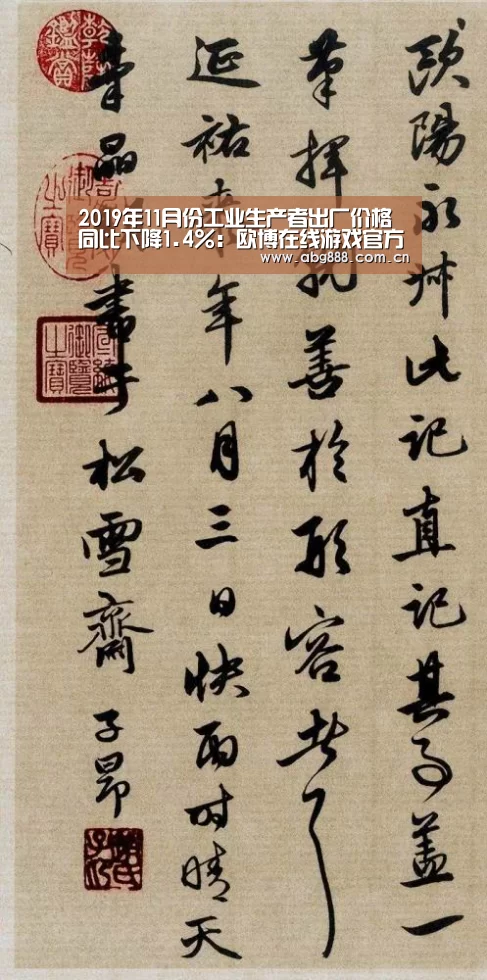 2019年11月份工业生产者出厂价格
同比下降1.4%：欧博在线游戏官方
www.abg888.com.cn
歐陽永叔此記直記其事蓋一
筆揮就善於形容者耳
延祐年八月三日快雨时晴天
晶書于松雪齋
子昂
乾隆鑑賞
宣統御覽之寶